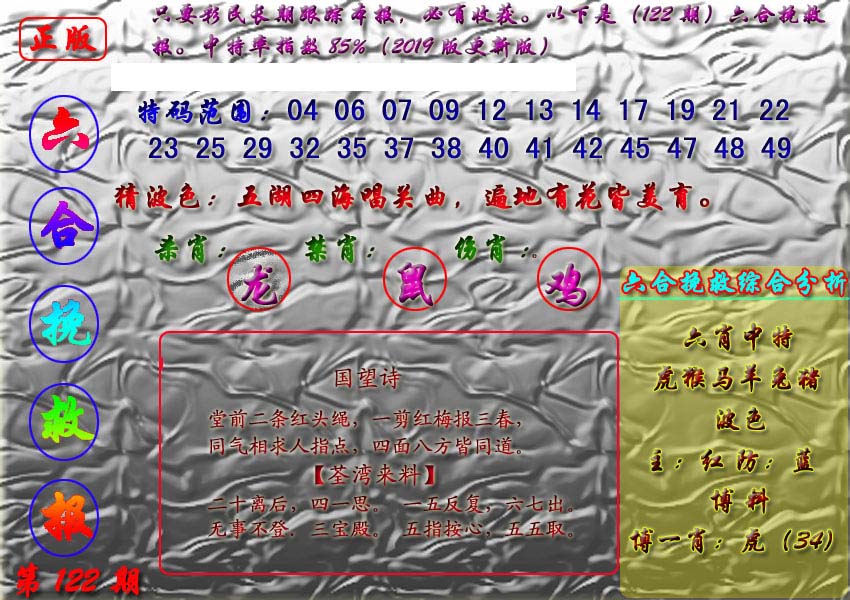 正版
只要彩民长期跟踪本报，必有收获。以下是（122期）六合挽救
报。中特率指数85%（2019版更新版）
六合挽救报
第122期
特码范围：04 06 07 09 12 13 14 17 19 21 22
23 25 29 32 35 37 38 40 41 42 45 47 48 49
猜波色：五湖四海唱关曲，遍地有花皆美育。
杀肖：龙 禁肖：鼠 伤肖：鸡
国望诗
堂前二条红头绳，一剪红梅报三春，
同气相求人指点，四面八方皆同道。
【荃湾来料】
二十离后，四一思。 一五反复，六七出。
无事不登．三宝殿。 五指按心，五五取。
六合挽救综合分析
六肖中特
虎猴马羊兔猪
波色
主：红防：蓝
博料
博一肖：虎（34）